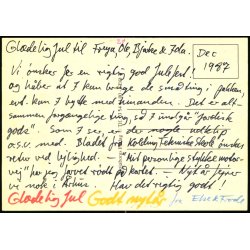 Glædelig Jul til Freya, Ole, Bjarke & Zola.
DEC 1987
Vi ønsker jer en rigtig god Julefest!
og håber at I kan bruge de småting i pakken,
evt. kan I bytte med hinanden. Det er alt-
sammen forgængelige ting, så I undgår "jordisk
gods". Som I ser, er de nogle udklip
o.s.v. med. Bladet fra Kolding Tekniske Skole ønskes
retur ved lejlighed. — "Mit personlige stykke motor-
vej" har jeg farvet rødt på kortet. — Nytår fejrer
vi nok i Århus. Hav det rigtig godt!
Glædelig Jul Godt nytår fra Else & Frode